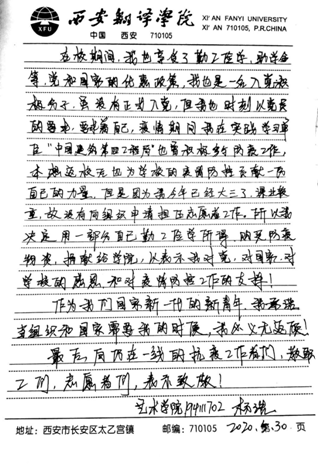 西安翻译学院
XI'AN FANYI UNIVERSITY
XFU
中国 西安 710105
XI'AN 710105, P.R.CHINA
在校期间,我也享受了勤工俭学、助学金
等党和国家的优惠政策,我也是一名入党积
极分子,虽没有正式入党,但我也时刻以党员
的要求,要求着自己,疫情期间我在实践学习单
在"中国建筑第四工程局"也曾积极参与防疫工作,
本想返校也为学校的疫情防控贡献一份
自己的力量。但是因为我今年已经大三了,课业较
重,故没有向组织申请担任志愿者工作。所以我
决定用一部分自己勤工俭学所得,购买防疫
物资,捐献给学院,以表示我对党、对国家、对
学校的感恩和对疫情防控工作的支持!
作为我们国家新一代的新青年,我承诺
党组织和国家需要我的时候,我必义无返顾!
最后,向仍在一线的抗疫工作者们,教职
工们,志愿者们,表示致敬!
艺术学院
地址:西安市长安区太乙宫镇
邮编:710105
2020. 30.页